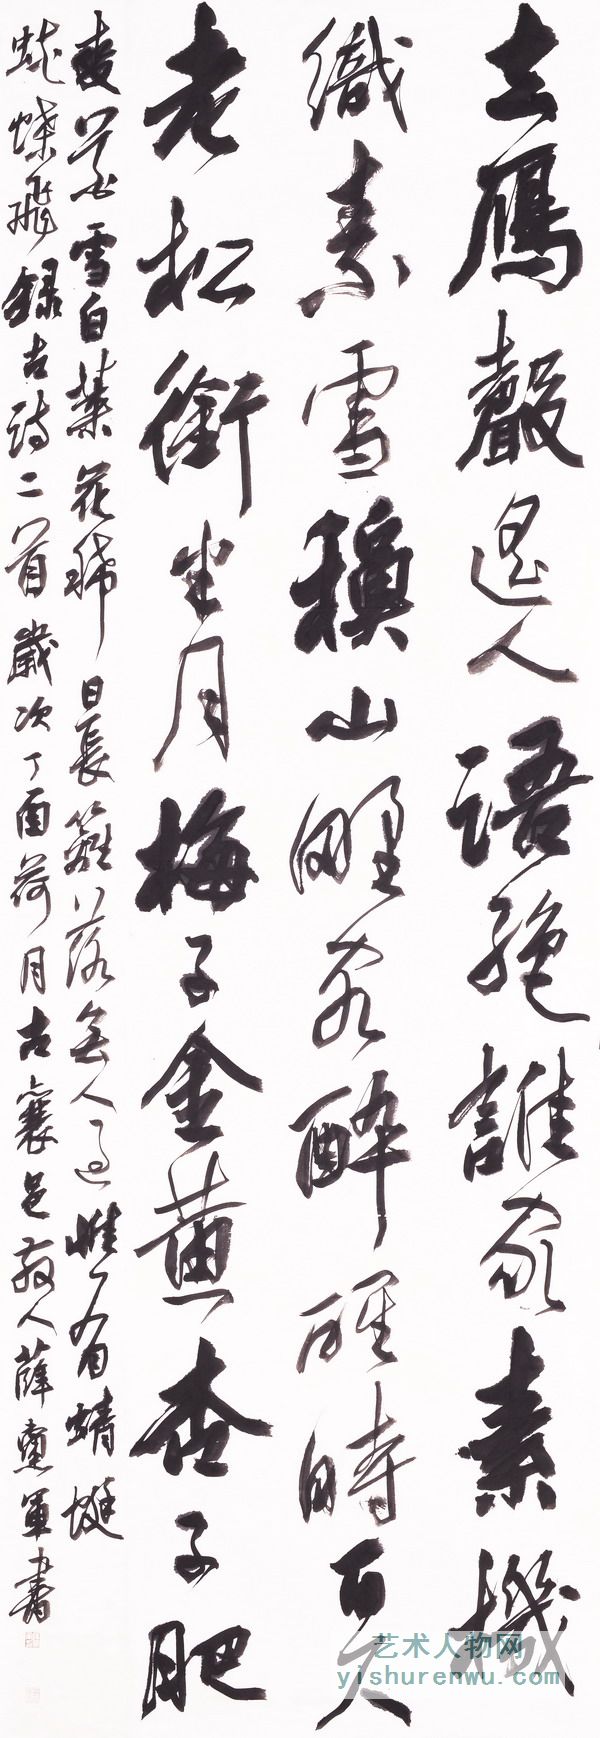 去雁聲遙人語絕誰家素機
織素雪秋山野客醉醒時百尺
老松銜半月梅子金黃杏子肥
麥花雪白菜花稀日長籬落無人過惟有蜻蜓
蛺蝶飛錄古詩二首歲次丁酉荷月古襄邑散人薛憲軍書
艺术人物网
yishurenwu.com